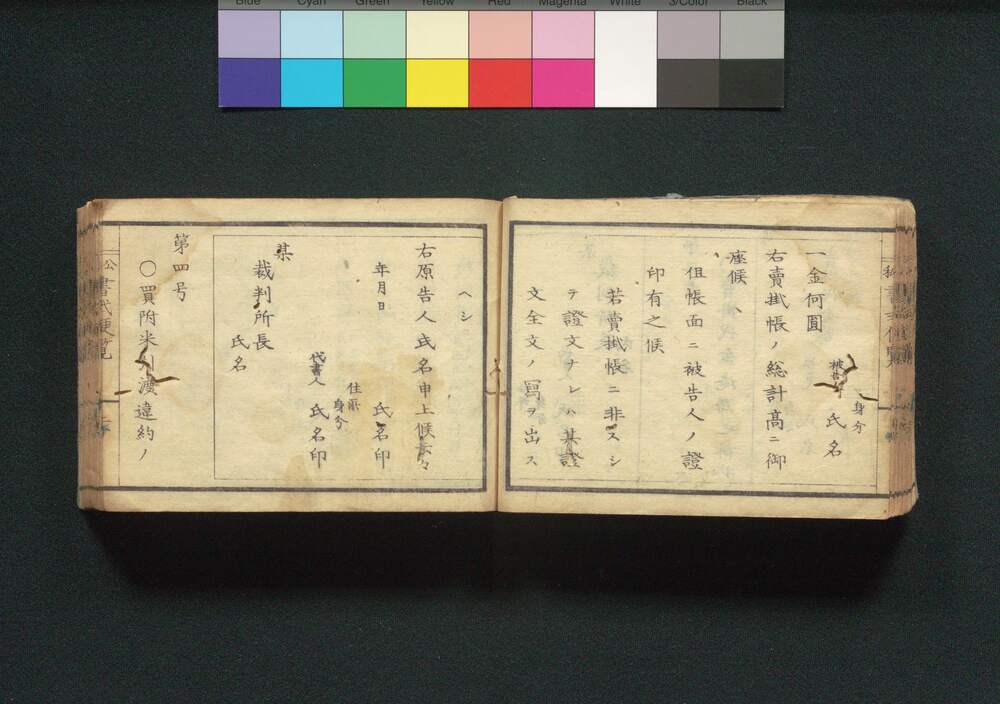 Blue Cyan Green Yellow Red Magenta White 3/Color Black
身分
被告人 氏名
一金何圓
右賣掛帳ノ総計髙ニ御
座候
但帳面ニ被告人ノ證
印有之候
若賣掛帳ニ非スシ
テ證文ナレハ其證
文全文ノ寫ヲ出ス
ヘシ
右原告人氏名申上候云々
年月日 氏名印
住所
身分
代書人 氏名印
某
裁判所長
氏名
第四号
〇買附米引渡違約ノ